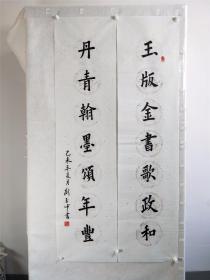 玉版金書歌政和
丹青翰墨頌年豐
乙未年夏月劉玉中書